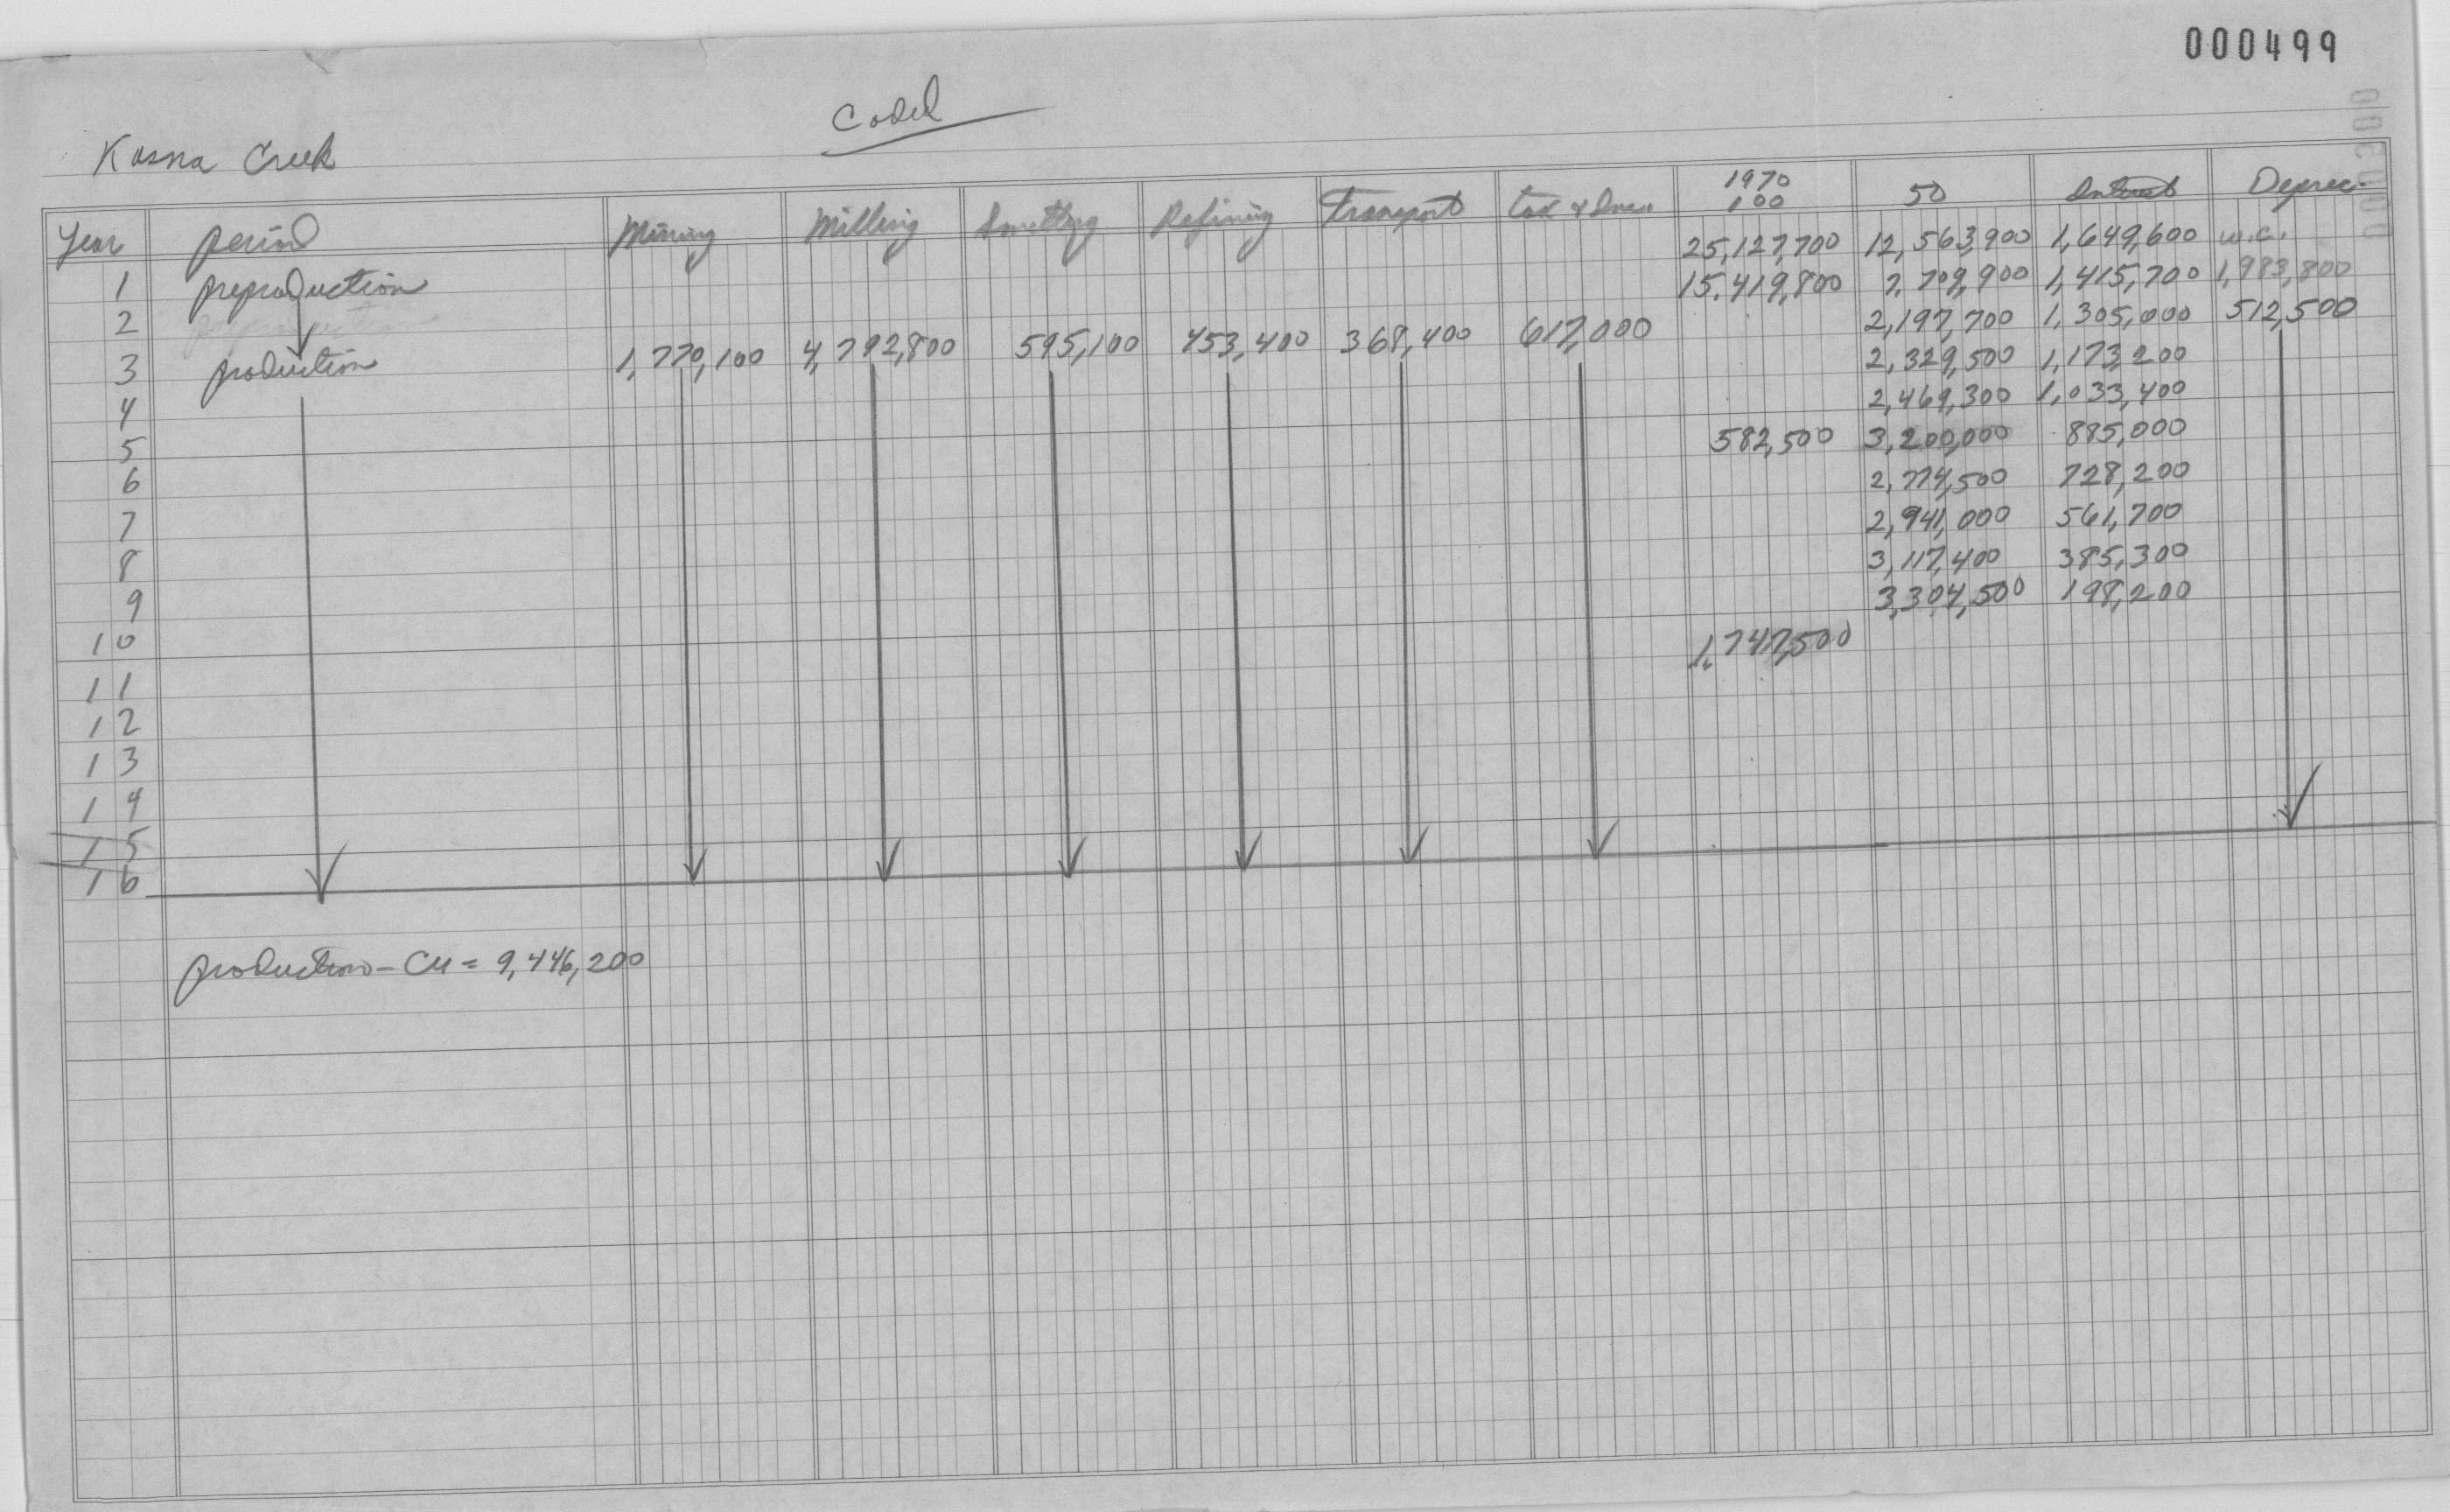 000499
Kasna Creek
Year period Mining Milling Smelting Refining Transport tax & Ins. 1970 100 50 Interest Deprec.
1 preproduction 25,127,700 12,563,900 1,649,600 w.c.
2 15,419,800 7,709,900 1,415,700 1,983,800
3 production 1,770,100 4,792,800 595,100 453,400 368,400 617,000 2,197,700 1,305,000 512,500
4 2,329,500 1,173,200
5 2,469,300 1,033,400
6 582,500 3,200,000 885,000
7 2,774,500 728,200
8 2,941,000 561,700
9 3,117,400 385,300
10 3,304,500 198,200
11 1,747,500
12
13
14
15
16
production - Cu = 9,446,200